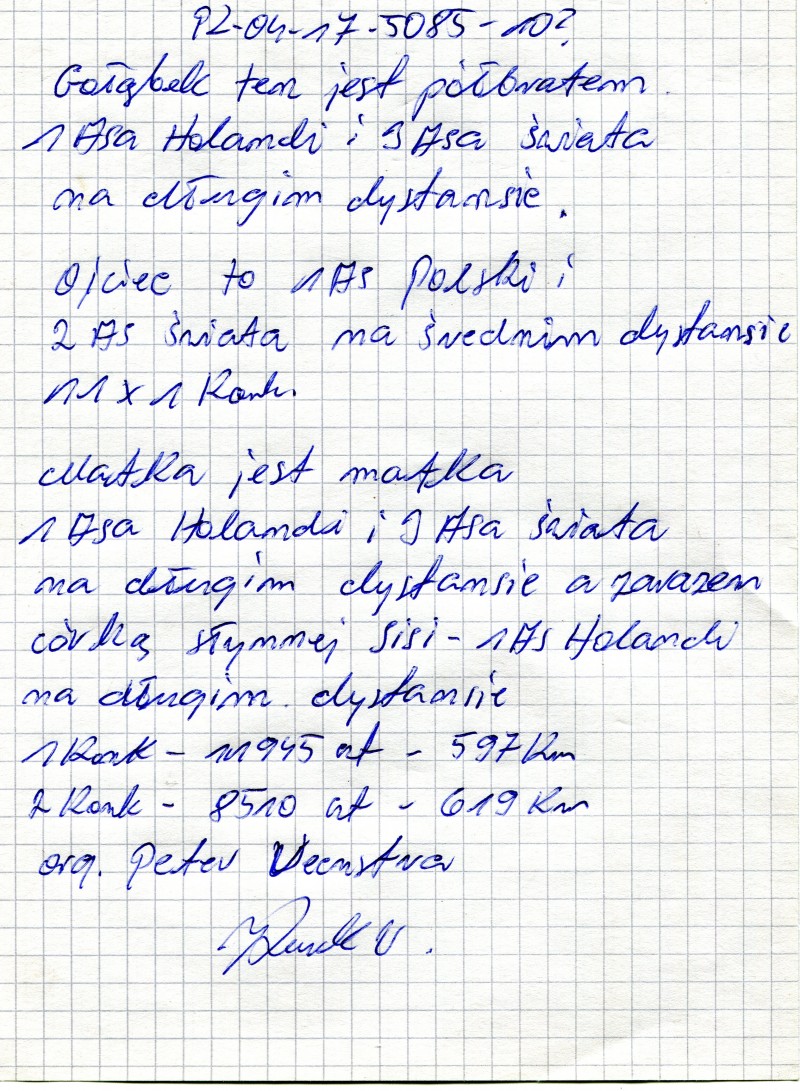 PL-04-17-5085-10?
Gołąbek ten jest półbratem
1 Asa Holandi i 9 Asa świata
na długim dystansie.
Ojciec to 1 As Polski i
2 As świata na średnim dystansie
11 x 1 Konk.
Matka jest matka
1 Asa Holandi i 9 Asa świata
na długim dystansie a zarazem
córką słynnej Sisi - 1 As Holandi
na długim dystansie
1 Konk - 11945 gt - 597 Km
2 Konk - 8510 gt - 619 Km
org. Peter Veenstra